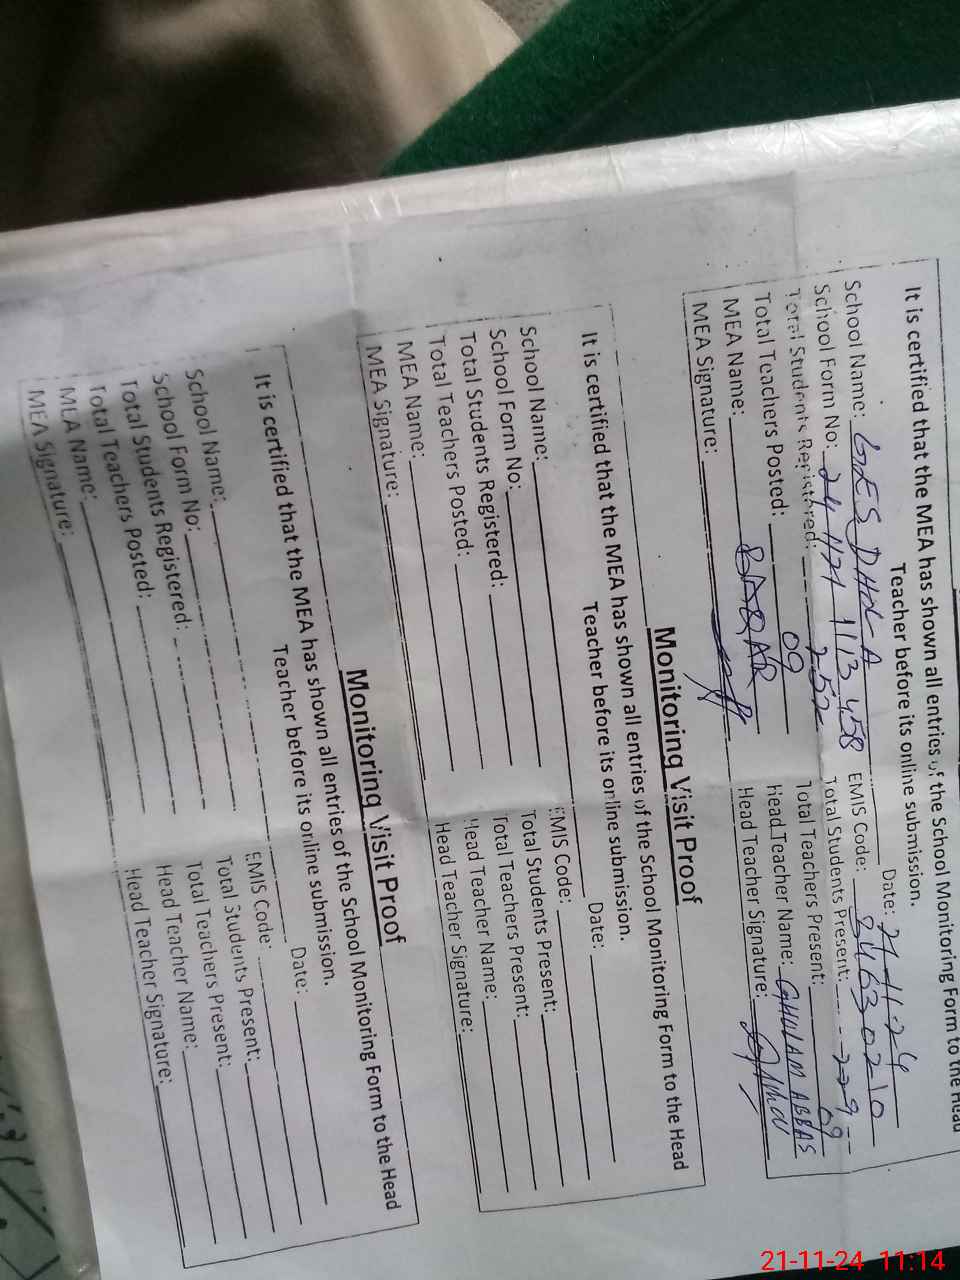 It is certified that the MEA has shown all entries of the School Monitoring Form to the Head
Teacher before its online submission.
Date: 21-11-24
School Name: GES DHOL A EMIS Code: 84630210
School Form No: 24 1121 1113 458 Total Students Present: 229
Total Students Registered: 252 Total Teachers Present: 09
Total Teachers Posted: 09 Head Teacher Name: GHULAM ABBAS
MEA Name: BAQAR Head Teacher Signature:
MEA Signature:
Monitoring Visit Proof
It is certified that the MEA has shown all entries of the School Monitoring Form to the Head
Teacher before its online submission.
Date:
School Name: EMIS Code:
School Form No: Total Students Present:
Total Students Registered: Total Teachers Present:
Total Teachers Posted: Head Teacher Name:
MEA Name: Head Teacher Signature:
MEA Signature:
Monitoring Visit Proof
It is certified that the MEA has shown all entries of the School Monitoring Form to the Head
Teacher before its online submission.
Date:
School Name: EMIS Code:
School Form No: Total Students Present:
Total Students Registered: Total Teachers Present:
Total Teachers Posted: Head Teacher Name:
MEA Name: Head Teacher Signature:
MEA Signature:
21-11-24 11:14